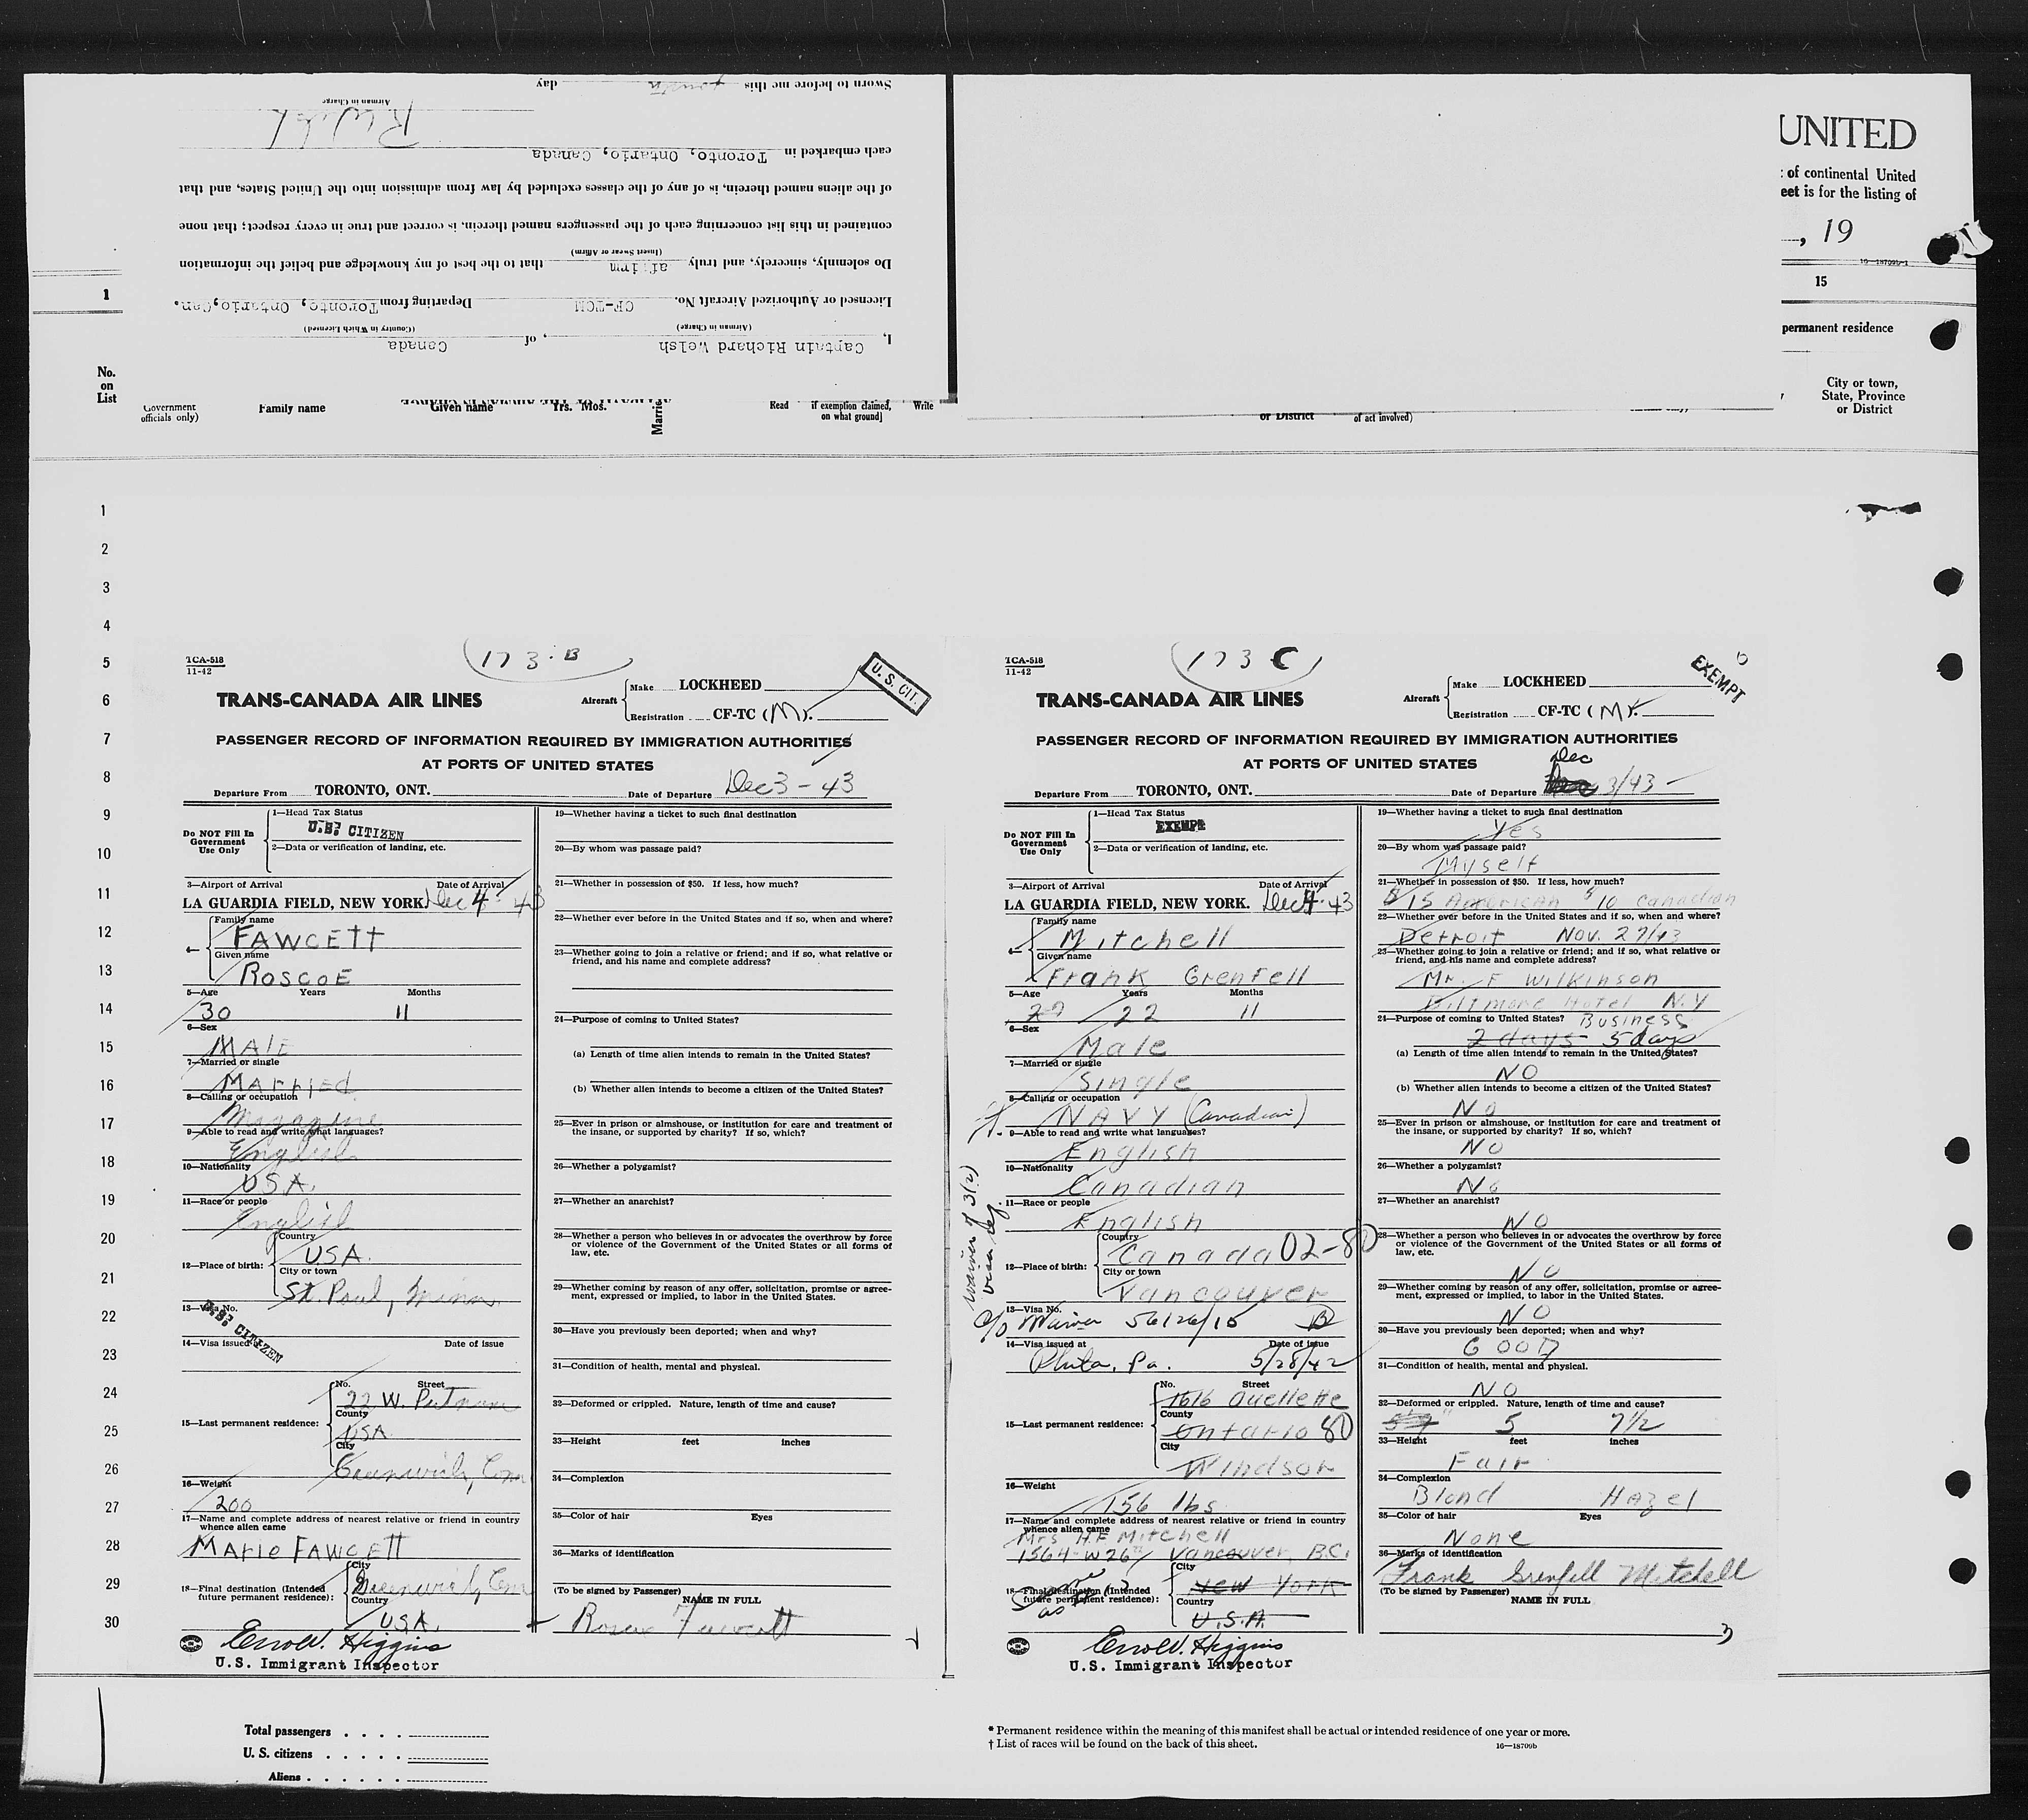 Sworn to before me this day
Airman in Charge
each embarked in Toronto, Ontario, Canada
of the aliens named therein, is of any of the classes excluded by law from admission into the United States, and that
contained in this list concerning each of the passengers named therein, is correct and true in every respect; that none
(Insert Swear or Affirm)
Do solemnly, sincerely, and truly affirm that to the best of my knowledge and belief the information
Licensed or Authorized Aircraft No. CF-TCM Departing from Toronto, Ontario, Can.
(Airman in Charge) (Country in Which Licensed)
I, Captain Richard Welsh, of Canada
UNITED
of continental United
eet is for the listing of
, 19
16—18709b-1
1
15
permanent residence
No.
on
List
Government
officials only)
Family name
Given name
Yrs. Mos.
Marrie
Read
if exemption claimed,
on what ground]
Write
or District
of act involved)
City or town,
State, Province
or District
1
2
3
4
5
6
7
8
9
10
11
12
13
14
15
16
17
18
19
20
21
22
23
24
25
26
27
28
29
30
TCA-518
11-42
173-B
U. S. CIT.
TRANS-CANADA AIR LINES
Aircraft
Make LOCKHEED
Registration CF-TC (M).
PASSENGER RECORD OF INFORMATION REQUIRED BY IMMIGRATION AUTHORITIES
AT PORTS OF UNITED STATES
Departure From TORONTO, ONT. Date of Departure Dec 3-43
Do NOT Fill In
Government
Use Only
1—Head Tax Status
U.S. CITIZEN
2—Data or verification of landing, etc.
3—Airport of Arrival Date of Arrival
LA GUARDIA FIELD, NEW YORK. Dec 4-43
4—
Family name
FAWCETT
Given name
ROSCOE
5—Age Years Months
30 11
6—Sex
MALE
7—Married or single
MARRIED
8—Calling or occupation
Magazine
9—Able to read and write what languages?
English
10—Nationality
USA.
11—Race or people
English
12—Place of birth:
Country
USA.
City or town
St. Paul, Minn.
13—Visa No.
U.S. CITIZEN
14—Visa issued Date of issue
15—Last permanent residence:
No. Street
22 W. Putnam
County
USA
City
Greenwich, Conn
16—Weight
200
17—Name and complete address of nearest relative or friend in country
whence alien came
MARIE FAWCETT
18—Final destination (Intended
future permanent residence):
City
Greenwich, Conn
Country
USA.
Errol V. Higgins
U.S. Immigrant Inspector
19—Whether having a ticket to such final destination
20—By whom was passage paid?
21—Whether in possession of $50. If less, how much?
22—Whether ever before in the United States and if so, when and where?
23—Whether going to join a relative or friend; and if so, what relative or
friend, and his name and complete address?
24—Purpose of coming to United States?
(a) Length of time alien intends to remain in the United States?
(b) Whether alien intends to become a citizen of the United States?
25—Ever in prison or almshouse, or institution for care and treatment of
the insane, or supported by charity? If so, which?
26—Whether a polygamist?
27—Whether an anarchist?
28—Whether a person who believes in or advocates the overthrow by force
or violence of the Government of the United States or all forms of
law, etc.
29—Whether coming by reason of any offer, solicitation, promise or agree-
ment, expressed or implied, to labor in the United States.
30—Have you previously been deported; when and why?
31—Condition of health, mental and physical.
32—Deformed or crippled. Nature, length of time and cause?
33—Height feet inches
34—Complexion
35—Color of hair Eyes
36—Marks of identification
(To be signed by Passenger)
NAME IN FULL
Roscoe Fawcett
TCA-518
11-42
173 C
EXEMPT
TRANS-CANADA AIR LINES
Aircraft
Make LOCKHEED
Registration CF-TC (M).
PASSENGER RECORD OF INFORMATION REQUIRED BY IMMIGRATION AUTHORITIES
AT PORTS OF UNITED STATES
Departure From TORONTO, ONT. Date of Departure Dec 3/43
Do NOT Fill In
Government
Use Only
1—Head Tax Status
EXEMPT
2—Data or verification of landing, etc.
3—Airport of Arrival Date of Arrival
LA GUARDIA FIELD, NEW YORK. Dec 4-43
4—
Family name
Mitchell
Given name
Frank Grenfell
5—Age Years Months
22 11
6—Sex
Male
7—Married or single
Single
8—Calling or occupation
NAVY (Canadian)
9—Able to read and write what languages?
English
10—Nationality
Canadian
11—Race or people
English
12—Place of birth:
Country
Canada 02-80
City or town
Vancouver
waiver of 3(2)
13—Visa No.
Waiver 56126/15
14—Visa issued at Date of issue
Phila, Pa. 5/28/42
15—Last permanent residence:
No. Street
1616 Ouellette
County
Ontario 80
City
Windsor
16—Weight
156 lbs
17—Name and complete address of nearest relative or friend in country
whence alien came
Mrs H.F Mitchell
1564 W 26th Vancouver, B.C.
18—Final destination (Intended
future permanent residence):
Same as 15
City
New York
Country
U.S.A.
Errol V. Higgins
U.S. Immigrant Inspector
19—Whether having a ticket to such final destination
Yes
20—By whom was passage paid?
Myself
21—Whether in possession of $50. If less, how much?
$15 American $10 Canadian
22—Whether ever before in the United States and if so, when and where?
Detroit Nov. 27/43
23—Whether going to join a relative or friend; and if so, what relative or
friend, and his name and complete address?
Mr. F Wilkinson
Biltmore Hotel N.Y
24—Purpose of coming to United States? Business
2 days 5 days
(a) Length of time alien intends to remain in the United States?
NO
(b) Whether alien intends to become a citizen of the United States?
No
25—Ever in prison or almshouse, or institution for care and treatment of
the insane, or supported by charity? If so, which?
NO
26—Whether a polygamist?
No
27—Whether an anarchist?
NO
28—Whether a person who believes in or advocates the overthrow by force
or violence of the Government of the United States or all forms of
law, etc.
NO
29—Whether coming by reason of any offer, solicitation, promise or agree-
ment, expressed or implied, to labor in the United States.
NO
30—Have you previously been deported; when and why?
GOOD
31—Condition of health, mental and physical.
NO
32—Deformed or crippled. Nature, length of time and cause?
5 7 1/2
33—Height feet inches
Fair
34—Complexion
Blond Hazel
35—Color of hair Eyes
None
36—Marks of identification
Frank Grenfell Mitchell
(To be signed by Passenger)
NAME IN FULL
Total passengers . . . .
U. S. citizens . . . . .
Aliens . . . . . .
* Permanent residence within the meaning of this manifest shall be actual or intended residence of one year or more.
† List of races will be found on the back of this sheet.
16—18709b